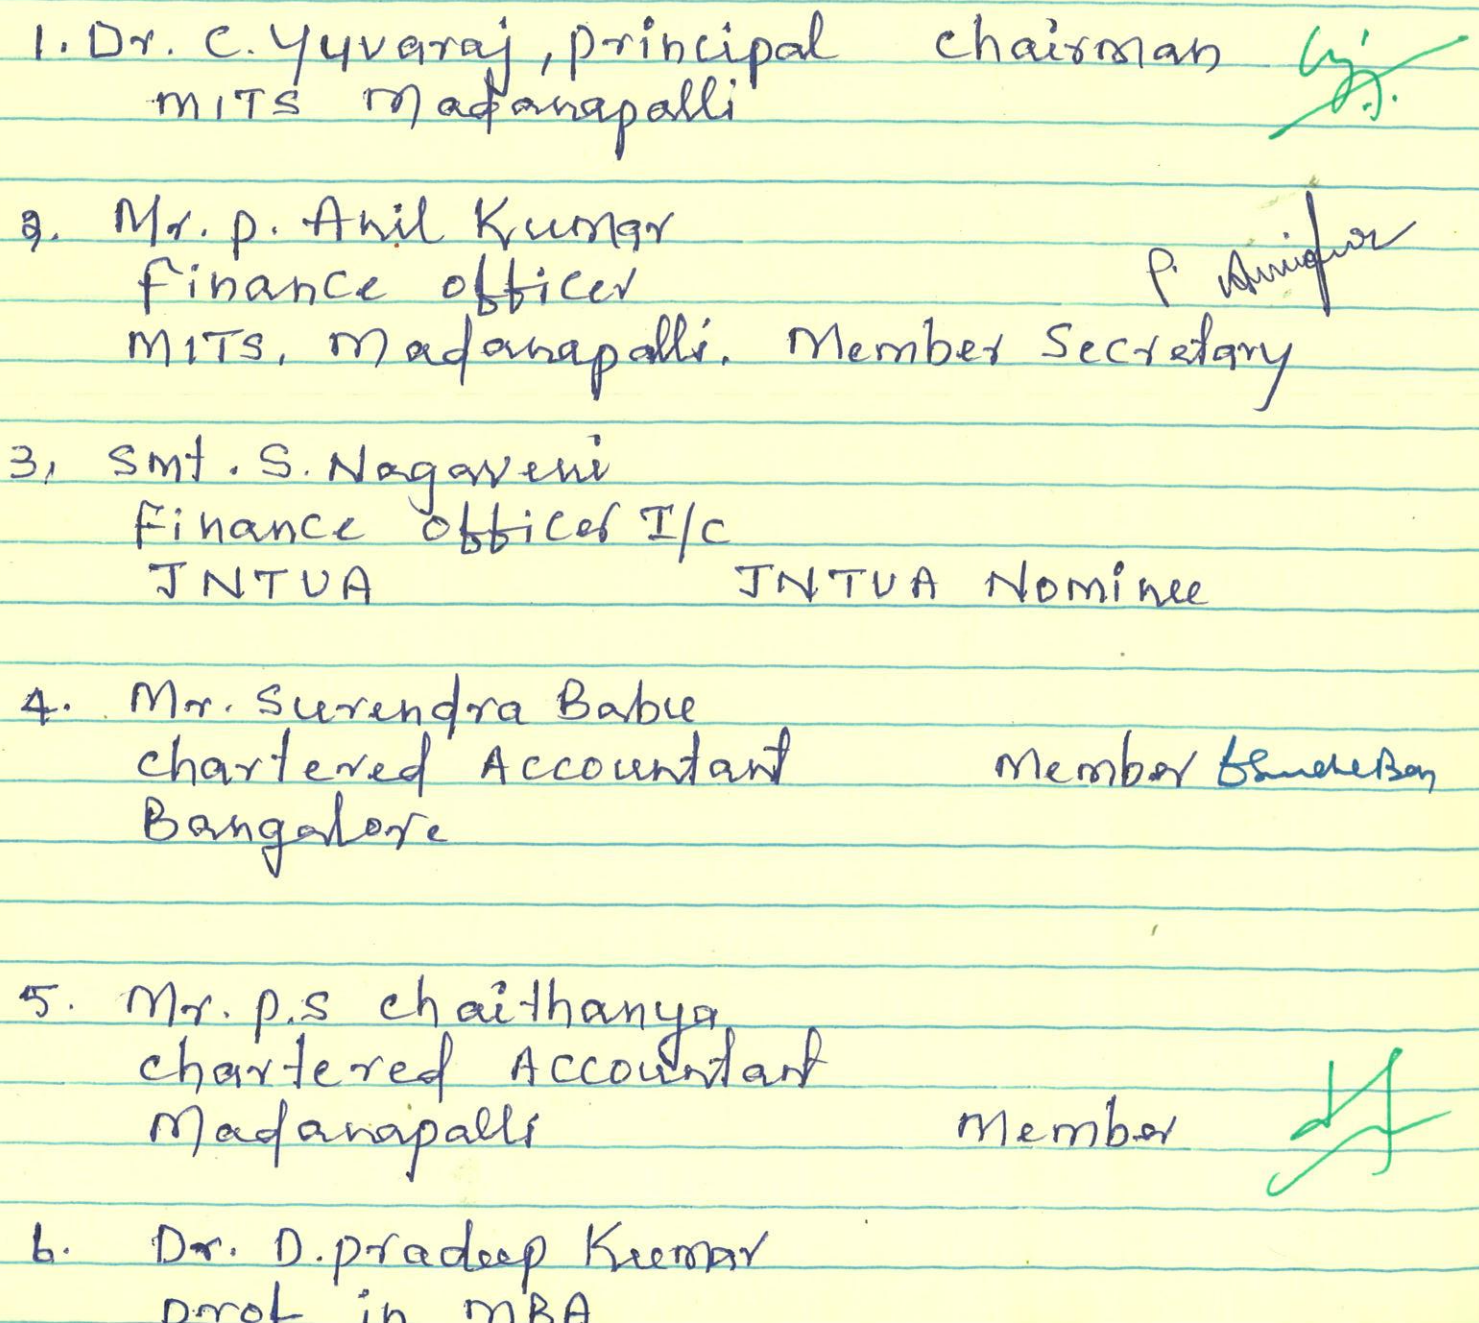 1. Dr. C. Yuvaraj, principal chairman
MITS Madanapalli
2. Mr. P. Anil Kumar
Finance officer
MITS, Madanapalli. Member Secretary
3, Smt. S. Nagaveni
Finance officer I/C
JNTUA JNTUA Nominee
4. Mr. Surendra Babu
chartered Accountant Member
Bangalore
5. Mr. P.S chaithanya
chartered Accountant
Madanapalli Member
6. Dr. D. pradeep Kumar
prof in MBA